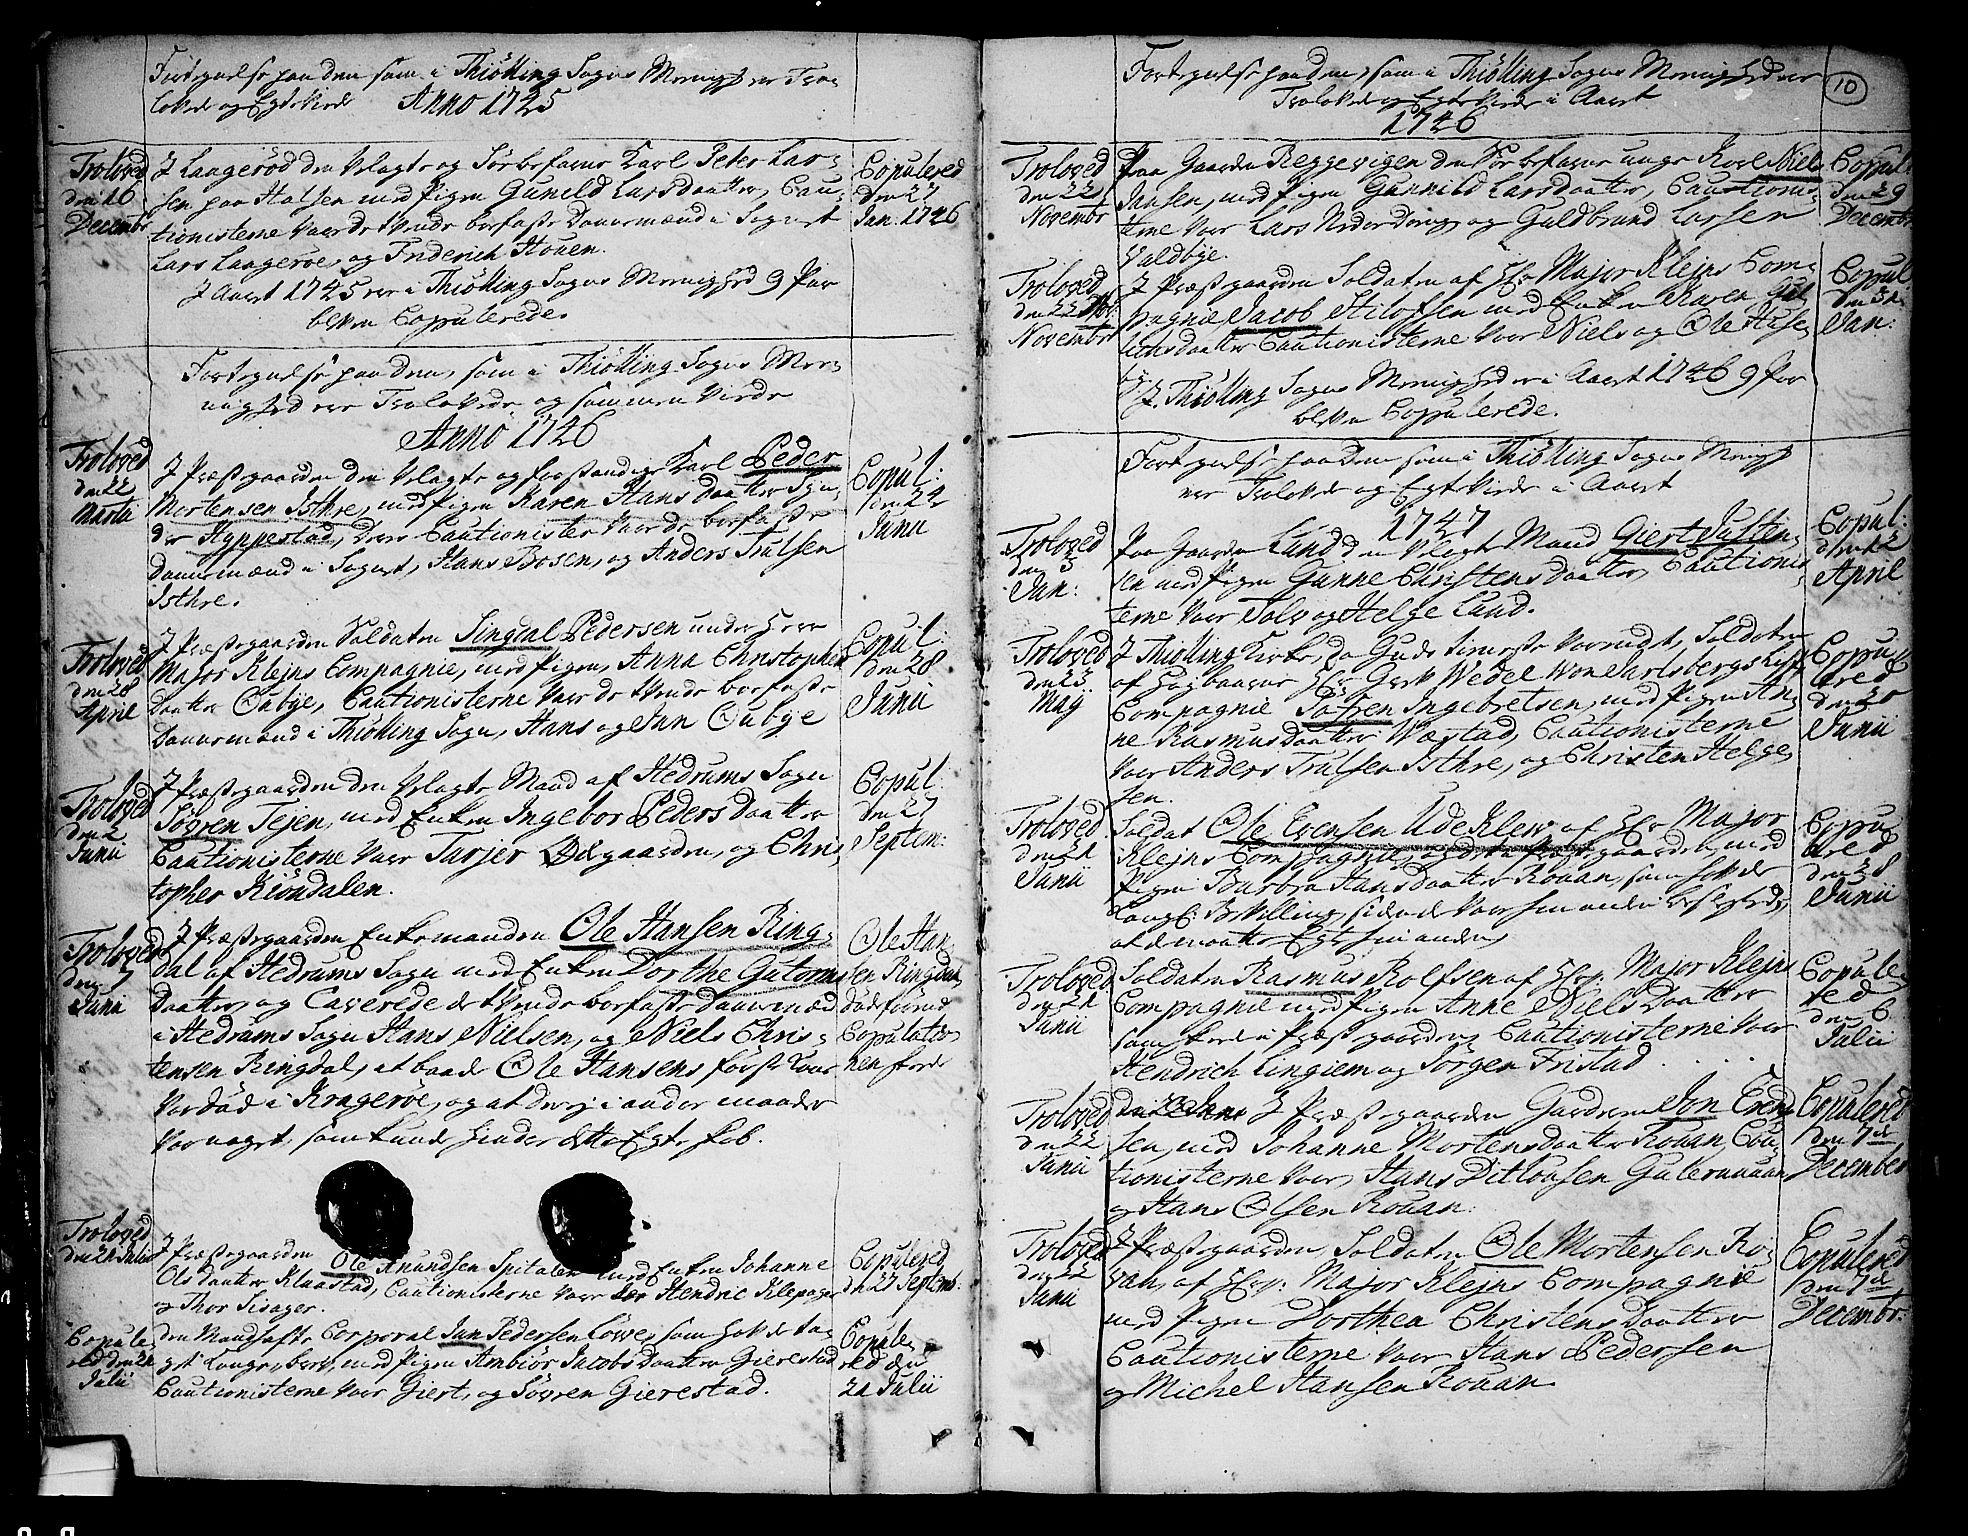 Fortegnelse paa dem som i Thiølling Sogns Menighed ere Tro-
lovede og Egteviede Anno 1745
Troloved
den 16
Decembr
I Laagerød den Velagte og Søebefarne Karl Peter Lar-
sen paa Halsen med Pigen Gunild Larsdaatter, Cau-
tionisterne Vare de tvende boefaste Dannemænd i Sognet
Lars Laagerøe, og Friderich Houen.
Copulered
den 27
Jan. 1746
I Aaret 1745 ere i Thiølling Sogns Menighed 9 Par
bleven Copulerede.
Fortegnelse paa dem, som i Thiølling Sogns Me-
nighed ere Trolovede og sammen Viede
Anno 1746
Troloved
den 22
Martii
I Præstegaarden den Velagte og forstandige Karl Peder
Mortensen Isthre, med Pigen Karen Hans Daatter
Hyppestad, Deres Cautionister Vare de boefaste
Dannemænd i Sognet, Hans Bosen, og Anders Trulsen
Isthre.
Copul:
den 24
Junii
Troloved
den 28
April
I Præstegaarden Soldaten Lingdal Pedersen under Herr
Major Klejns Compagnie, med Pigen, Anna Christophers
Daatter Oubye, Cautionisterne Vare de tvende boefaste
Dannemænd i Thiølling Sogn, Hans og Jan Oubye
Copul:
den 28
Junii
Troloved
den 2
Junii
I Præstegaarden den Velagte Mand af Hedrums Sogn
Søvren Tejen, med Enken Ingebor Peders Daatter
Cautionisterne Vare Tarjer Ødegaarden, og Chris
topher Kiøndalen.
Copul:
den 27
Septem:
Troloved
den 7
Junii
I Præstegaarden Enkemanden Ole Hansen Ring-
dal af Hedrums Sogn med Enken Dorthe Gutorms
Daatter, og Caverede de tvende boefaste Dannemænd
i Hedrums Sogn Hans Nielsen, og Niels Chris-
tensen Ringdal, at baade Ole Hansens første Kone
Var død i Krageröe, og at der ej i andre maader
Var noget, som kunde hindre dette Egteskab.
Ole Han-
sen Ringdal
døde førend
Copulatio-
nen skeede
Troloved
den 21 Julii
I Præstegaarden Ole Knundsen Spitalen med Enken Johanne
Olsdaatter Klaastad, Cautionisterne Vare Hendric Klepager
og Thor Sisager.
Copulered
den 27 Septemb.
Copule-
red den 21
Julii
den Mandhafte Corporal Jan Pedersen Løwe, som havde ta-
get Konge-brev, med Pigen Ambiør Jacobs Daatter Gierestad
Cautionisterne Vare Giert, og Søvren Gierestad.
Copule-
red den
21 Julii
10
Fortegnelse paa dem, som i Thiølling Sogns Menighed ere
Trolovede og Egteviede i Aaret
1746
Troloved
den 22
Novembr
Paa Gaarden Reggevigen den Søebefarne unge Karl Niels
Jansen, med Pigen Gunnild Larsdaatter, Cautionis-
terne Vare Lars Nederdong og Guldbrand Larsen
Valdbye.
Copul:
den 29
Decembr
Troloved
den 22 Nov:
Novembr
I Præstegaarden Soldaten af Hr Major Klejns Com-
pagnie Jacob Stilofsen med Enken Karen Gul
liensdaatter Cautionisterne Vare Niels og Ole Huse-
by.
Copul:
den 31
Jan:
I Thiølling Sogns Menighed ere i Aaret 1746 9 Par
bleven Copulerede.
Fortegnelse paa dem som i Thiølling Sogns Menigh
ere Trolovede og Egteviede i Aaret
1747
Troloved
den 5
Jan:
Paa Gaarden Lund den Velagte Mand Giert Justen-
sen med Pigen Gunne Christens Daatter, Cautionis
terne Vare Salv og Helge Lund.
Copul:
den 12
April
Troloved
den 23
Maij
I Thiølling Kirke, da Guds tieneste Var endt, Soldaten
af Høgbaarne Hr Grev Wedel Won Jarlsbergs Lif
Compagnie Søfren Ingebretsen, med Pigen An-
ne Rasmusdaatter Væstad, Cautionisterne
Vare Anders Trulsen Isthre, og Christen Helge-
sen.
Copu-
lered
den 28
Junii
Troloved
den 21
Junii
Soldat Ole Evensen Ude Klev af Hr Major
Klejns Compagnie, med
Pigen Barbra Hans Daatter Rouan, som havde
Kongl: Bevilling, siden de Vare hinanden beslegtede,
at de maatte Egte hinanden,
Copu-
lered
den 28
Junii
Troloved
den 21
Junii
Soldaten Rasmus Rolfsen af Hr. Major Klejns
Compagnie med Pigen Anne Niels Daatter
som skeede i Præstegaarden, Cautionisterne Vare
Hendrich Lingiem og Jørgen Fristad . . . .
Copule-
red
den 6
Julii
Troloved
den 22
Junii
I Præstegaarden Garderen Jon Evend-
sen, med Johanne Mortens Daatter Rouan, Cau-
tionisterne Vare, Hans Ditlousen Guternuuan
og Hans Olsen Rouan.
Copulered
den 7de
December
Troloved
den 22
Junii
I Præstegaarden, Soldaten Ole Mortensen Ro-
van, af Hr: Major Klejns Compagnie
med Pigen Dorthea Christens Daatter
Cautionisterne Vare Hans Pedersen
og Michel Hansen Rouan.
Copulered
den 7de
Decembr.